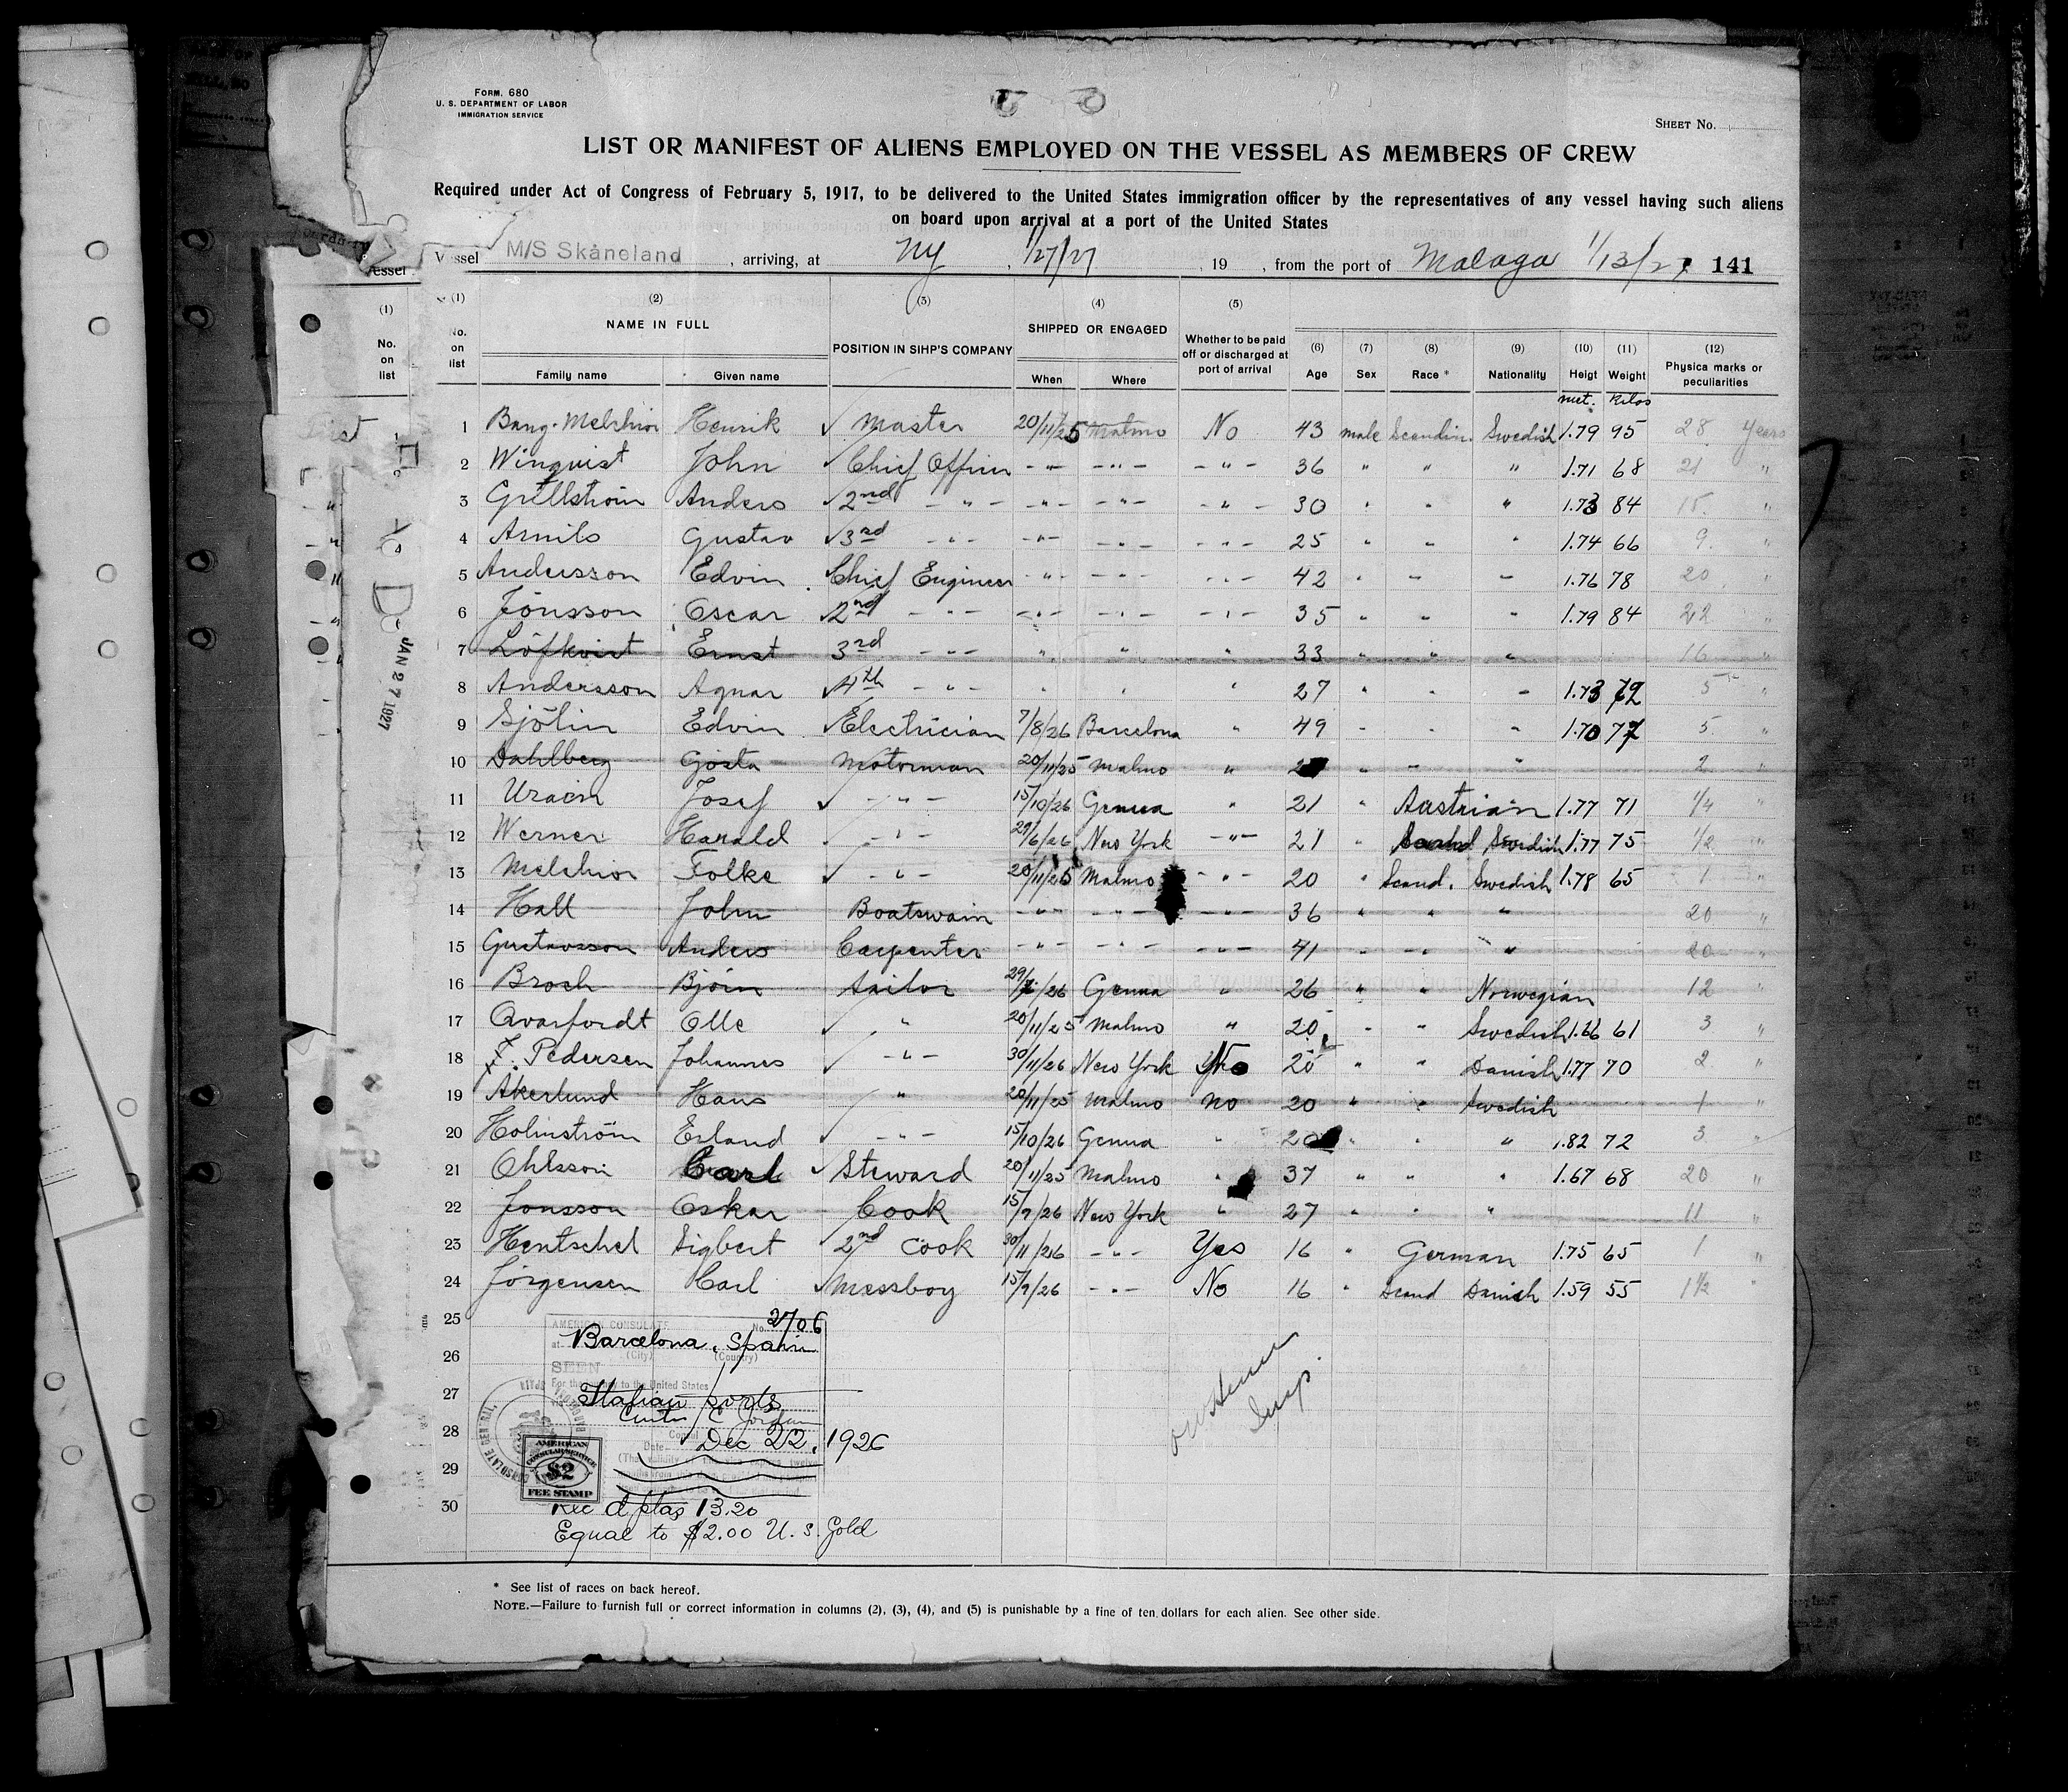 FORM. 680
U. S. DEPARTMENT OF LABOR
IMMIGRATION SERVICE
SHEET No.
LIST OR MANIFEST OF ALIENS EMPLOYED ON THE VESSEL AS MEMBERS OF CREW
Required under Act of Congress of February 5, 1917, to be delivered to the United States immigration officer by the representatives of any vessel having such aliens
on board upon arrival at a port of the United States
Vessel M/S Skåneland, arriving, at NY, 1/27/27, 19 , from the port of Malaga 1/13/27 141
(1) (2) (3) (4) (5) (6) (7) (8) (9) (10) (11) (12)
No. on list NAME IN FULL Family name Given name POSITION IN SIHP'S COMPANY SHIPPED OR ENGAGED When Where Whether to be paid off or discharged at port of arrival Age Sex Race * Nationality Heigt Weight Physica marks or peculiarities
met. kilos
1 Bang-Melchior Henrik ✓ Master 20/11/25 Malmo No 43 male Scandin. Swedish 1.79 95 28 years
2 Winquist John ✓ Chief Officer -"- -"- -"- 36 " " " 1.71 68 21 "
3 Gullström Anders ✓ 2nd -"- -"- -"- -"- 30 " " " 1.73 84 15. "
4 Arnils Gustav ✓ 3rd -"- -"- -"- -"- 25 " " " 1.74 66 9. "
5 Andersson Edvin ✓ Chief Engineer -"- -"- -"- 42 " " " 1.76 78 20 "
6 Jönsson Oscar ✓ 2nd -"- -"- -"- -"- 35 " " " 1.79 84 22 "
7 Löfkvist Ernst 3rd -"- " " " 33 " " " 16 "
8 Andersson Agnar ✓ 4th -"- " " " 27 " " " 1.73 72 5 "
9 Sjölin Edvin ✓ Electrician 7/8/26 Barcelona " 49 " " " 1.70 77 5 "
10 Dahlberg Gösta Motorman 20/11/25 Malmo " " " " 2 "
11 Josef ✓ -"- 15/10/26 Genua " 21 " Austrian 1.77 71 1/4 "
12 Werner Harald -"- 29/6/26 New York -"- 21 " Scand Swedish 1.77 75 1/2 "
13 Melchior Folke ✓ -"- 20/11/25 Malmo -"- 20 " Scand. Swedish 1.78 65 1 "
14 Hall John Boatswain -"- -"- -"- 36 " " " 20 "
15 Gustavsson Anders Carpenter -"- -"- -"- 41 " " " 20 "
16 Broch Björn Sailor 29/ /26 Genua " 26 " " Norwegian 12 "
17 Qvarfordt Olle ✓ " 20/11/25 Malmo " 20 " " Swedish 1.66 61 3 "
18 F. Pedersen Johannes ✓ -"- 30/11/26 New York No 20 " " Danish 1.77 70 2 "
19 Akerlund Hans " 20/11/25 Malmo No 20 " " Swedish 1 "
20 Holmström Erland ✓ -"- 15/10/26 Genua " 20 " " " 1.82 72 3 "
21 Ohlsson Carl ✓ Steward 20/11/25 Malmo " 37 " " " 1.67 68 20 "
22 Jonsson Oskar Cook 15/9/26 New York " 27 " " " 11 "
23 Hentschel Sigbert 2nd Cook 30/11/26 -"- Yes 16 " German 1.75 65 1 "
24 Jörgensen Carl ✓ Messboy 15/9/26 -"- No 16 " Scand Danish 1.59 55 1 1/2 "
25
26
27
28
29
30
AMERICAN CONSULATE No. 2706
at Barcelona, Spain
(City) (Country)
SEEN
For the journey to the United States
Italian ports
Consul
Date Dec 22, 1926
CONSULATE GENERAL
AMERICAN
CONSULAR SERVICE
$2
FEE STAMP
Rec'd ptas 13.20
Equal to $2.00 U. S. Gold
Insp.
* See list of races on back hereof.
NOTE.—Failure to furnish full or correct information in columns (2), (3), (4), and (5) is punishable by a fine of ten dollars for each alien. See other side.
Vessel
(1)
No.
on
list
First
JAN 27 1927